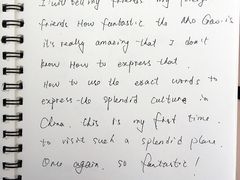 I will tell my friends my foreign
friends How fantastic the Mo Gao is
it's really amazing that I don't
know How to express that.
How to use the exact words to
express the splendid culture in
China. this is my first time
to visit such a splendid place.
Once again. so fantastic!